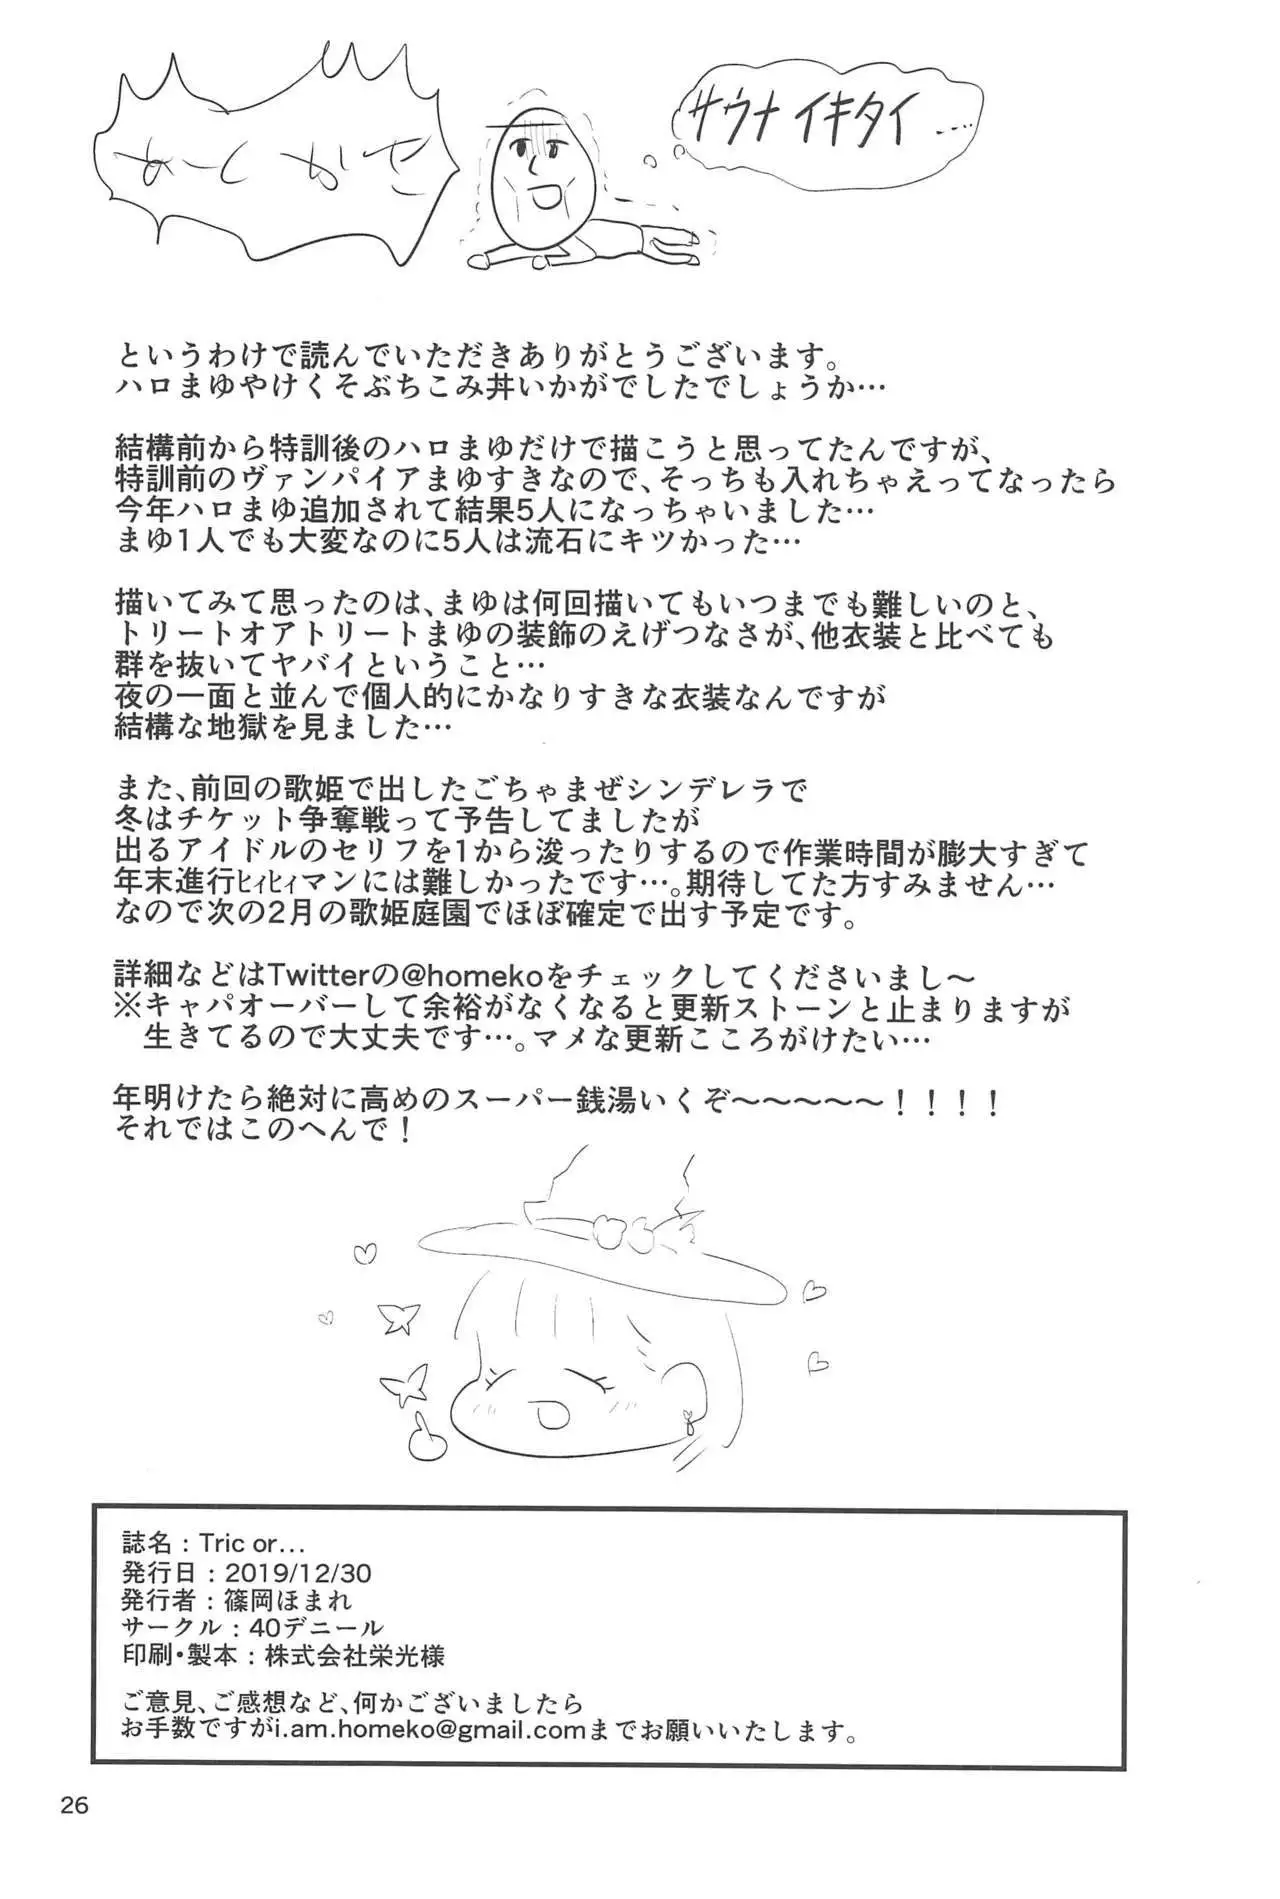 あとがき
サウナイキタイ……
というわけで読んでいただきありがとうございます。
ハロまゆやけくそぶちこみ丼いかがでしたでしょうか…
結構前から特訓後のハロまゆだけで描こうと思ってたんですが、
特訓前のヴァンパイアまゆすきなので、そっちも入れちゃえってなったら
今年ハロまゆ追加されて結果5人になっちゃいました…
まゆ1人でも大変なのに5人は流石にキツかった…
描いてみて思ったのは、まゆは何回描いてもいつまでも難しいのと、
トリートオアトリートまゆの装飾のえげつなさが、他衣装と比べても
群を抜いてヤバイということ…
夜の一面と並んで個人的にかなりすきな衣装なんですが
結構な地獄を見ました…
また、前回の歌姫で出したごちゃまぜシンデレラで
冬はチケット争奪戦って予告してましたが
出るアイドルのセリフを1から浚ったりするので作業時間が膨大すぎて
年末進行ﾋｨﾋｨマンには難しかったです…。期待してた方すみません…
なので次の2月の歌姫庭園でほぼ確定で出す予定です。
詳細などはTwitterの@homekoをチェックしてくださいまし～
※キャパオーバーして余裕がなくなると更新ストーンと止まりますが
生きてるので大丈夫です…。マメな更新こころがけたい…
年明けたら絶対に高めのスーパー銭湯いくぞ～～～～～！！！！
それではこのへんで！
誌名：Tric or…
発行日：2019/12/30
発行者：篠岡ほまれ
サークル：40デニール
印刷・製本：株式会社栄光様
ご意見、ご感想など、何かございましたら
お手数ですがi.am.homeko@gmail.comまでお願いいたします。
26